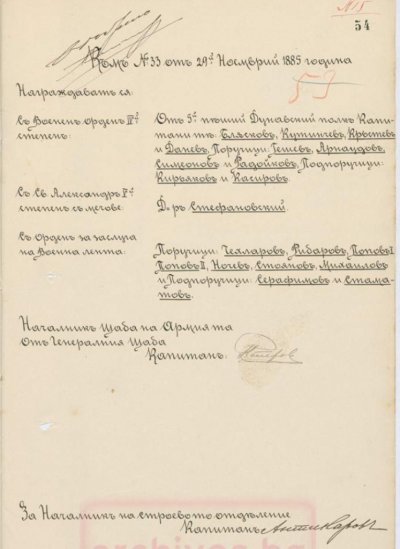 №15
54
Къмъ № 33 отъ 29й Ноемврий 1885 година
53
Награждаватъ ся:
Съ Военен. Орденъ IVй
степень:
Отъ 5й пѣший Дунавский полкъ Капи-
танитѣ: Блясковъ, Кутинчевъ, Кръстевъ
и Даневъ, Поручици: Тешевъ, Арнаудовъ,
Симеоновъ и Радойковъ, Подпоручици:
Кирьяковъ и Касировъ.
Съ Св. Александръ Vй
степень съ мечове:
Д-ръ Стефановский.
Съ Орденъ за заслуга
на Военна лента:
Поручици: Чехларовъ, Рибаровъ, Поповъ I
Поповъ II, Ночевъ, Стояновъ, Михаиловъ
и Подпоручици: Серафимовъ и Стама-
товъ.
Началникъ Щаба на Армията
Отъ Генералния Щаба
Капитанъ: Петровъ
За Началникъ на строевото отдѣление
Капитанъ
archives.bg